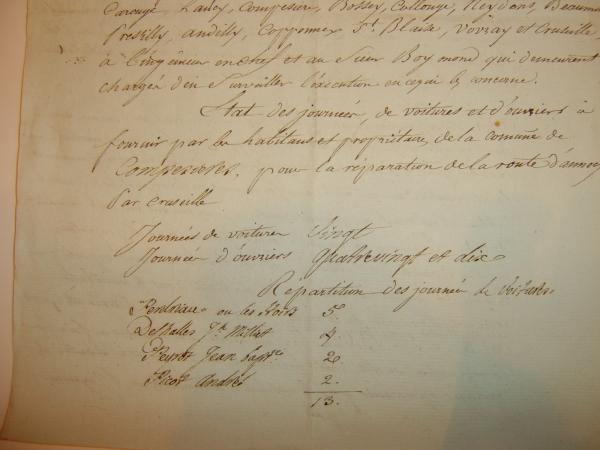 Carouge, Lancy, Compesière, Bossey, Collonge, Neydens, Beaumont
Presilly, Andilly, Copponnex St. Blaise, Vovray et Cruseille,
à l'ingénieur en chef et au Sieur Boymond qui demeurent
chargés d'en surveiller l'éxecution en ce qui les concerne.
Etat des journées, de voitures et d'ouvriers à
fournir par les habitans et propriétaires de la comune de
Compesières, pour la réparation de la route d'annecy
Par Cruseille
Journées de voitures Vingt
Journées d'ouvriers Quatrevingt et dix
Répartition des journées de voitures
ou les Hoirs 5.
Deshalles Jn 4.
Jean Bapte 2.
Picot André 2.
13.